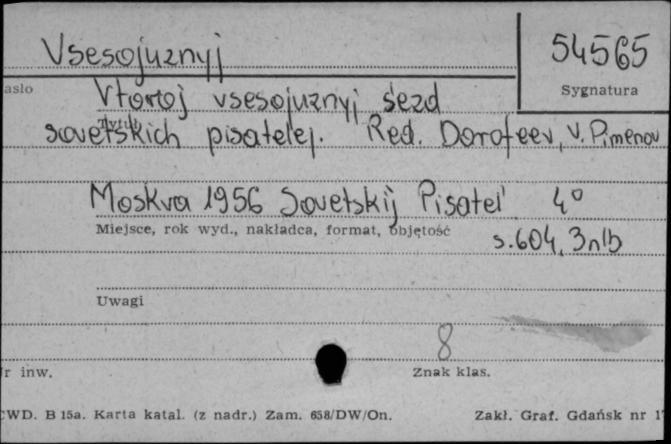 Vsesojuznyj
54565
asło
Sygnatura
Vtoroj vsesojuznyj s'ezd
Tytuł
sovetskich pisatelej. Red. Dorofeev, V. Pimenov
Moskva 1956 Sovetskij Pisatel' 4°
Miejsce, rok wyd., nakładca, format, objętość
s. 604, 3 nlb
Uwagi
8
r inw.
Znak klas.
CWD. B 15a. Karta katal. (z nadr.) Zam. 658/DW/On.
Zakł. Graf. Gdańsk nr 1